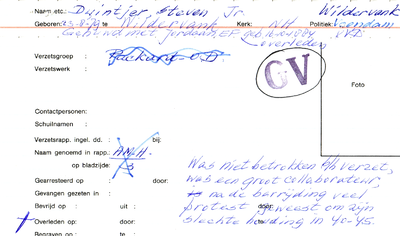 Naam, etc.: Duintjer Steven Jr. Wildervank
Geboren: 23-8-79 te Wildervank Kerk: NH Politiek: Veendam
Gehuwd met Jordaan, EF geb. VVD.
overleden
Verzetsgroep : Packard-O.D
Verzetswerk :
GV
Foto
Contactpersonen:
Schuilnamen :
Verzetsrapp. ingel. dd. : bij:
Naam genoemd in rapp.: AM.H.
op bladzijde:
Was niet betrokken b/h verzet,
was een groot collaborateur,
Gearresteerd op : door:
Gevangen gezeten in :
na de bevrijding veel
Bevrijd op : uit : door:
protest geweest om zijn
Overleden op: door: te
slechte houding in 40-45.
Begraven op : te